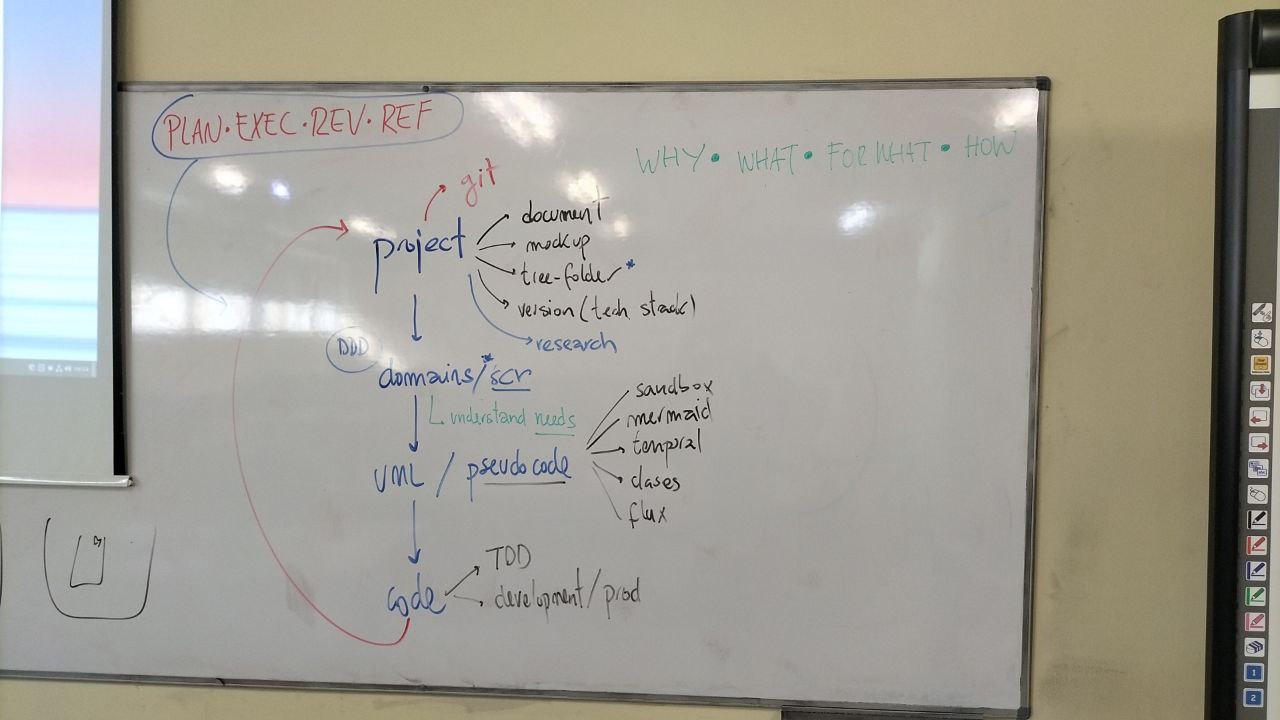 PLAN·EXEC·REV·REF
WHY· WHAT· FOR WHAT· HOW
git
project
document
mockup
tree-folder*
version (tech stack)
research
DDD
domains/*scr
understand needs
UML / pseudocode
sandbox
mermaid
temporal
clases
flux
code
TDD
development/prod
1
2